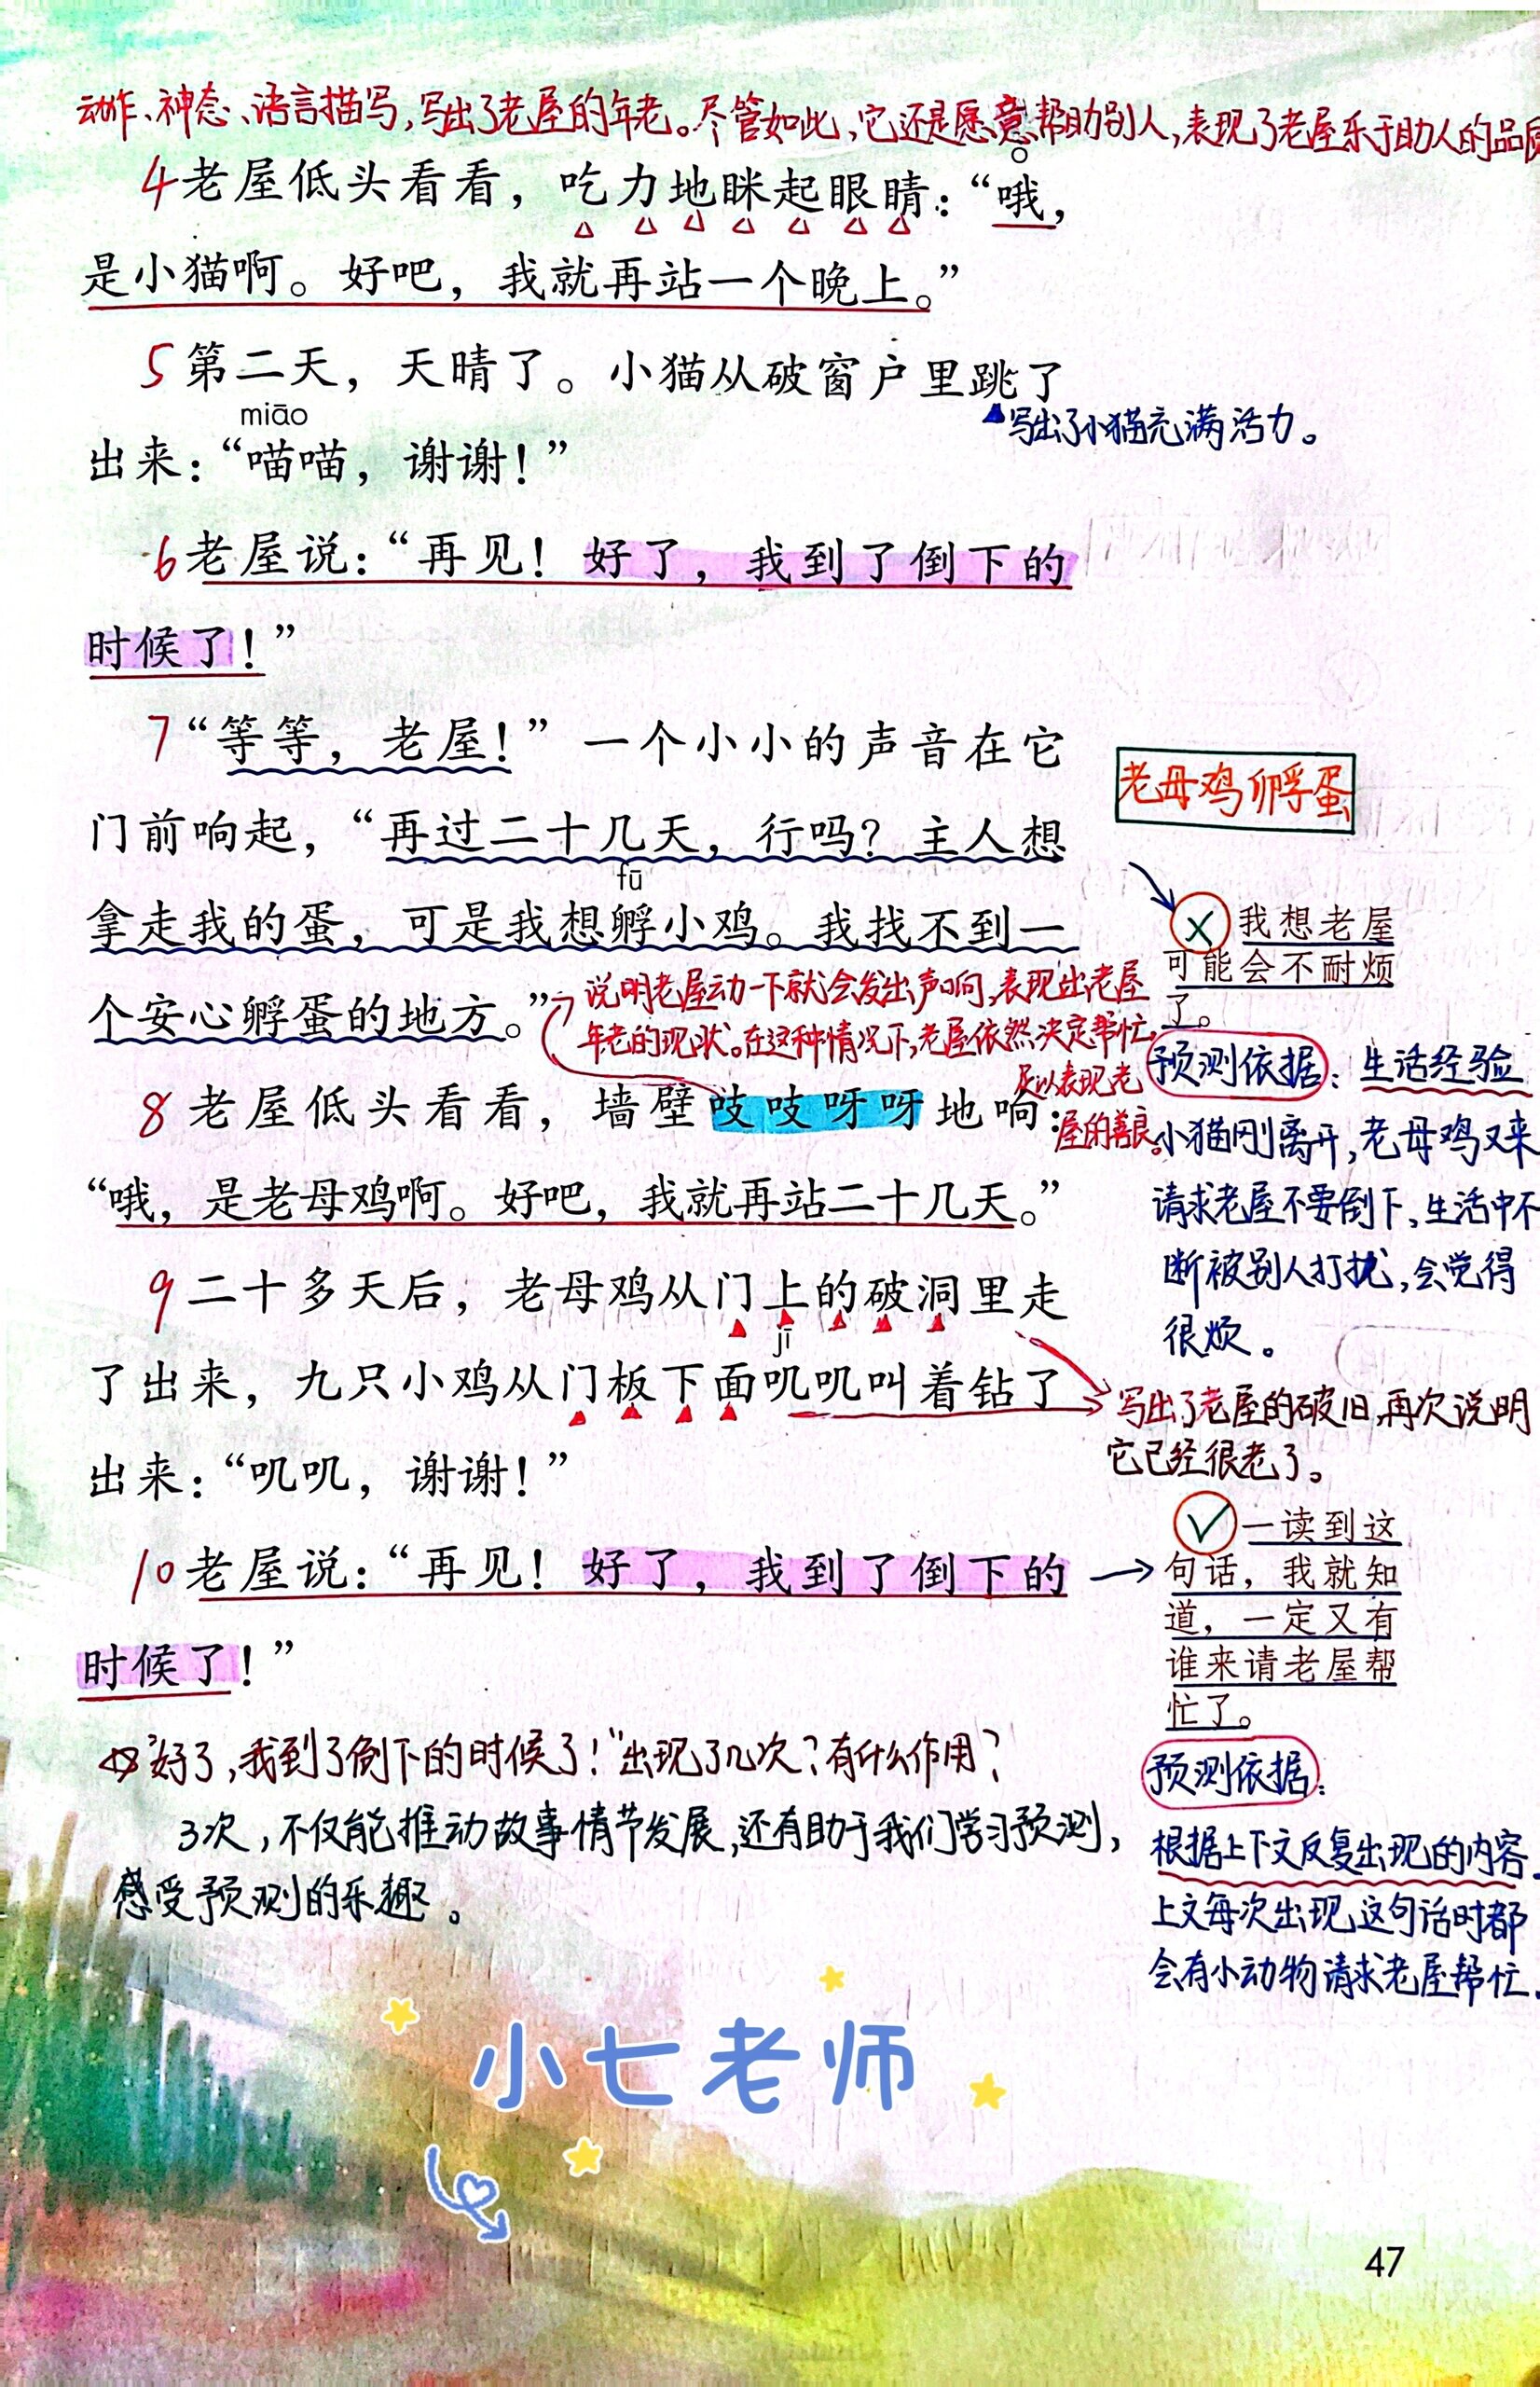 动作、神态、语言描写，写出了老屋的年老。尽管如此，它还是愿意帮助别人，表现了老屋乐于助人的品质
4 老屋低头看看，吃力地眯起眼睛：“哦，
是小猫啊。好吧，我就再站一个晚上。”
5 第二天，天晴了。小猫从破窗户里跳了
写出了小猫充满活力。
miāo
出来：“喵喵，谢谢！”
6 老屋说：“再见！好了，我到了倒下的
时候了！”
7 “等等，老屋！”一个小小的声音在它
门前响起，“再过二十几天，行吗？主人想
fū
拿走我的蛋，可是我想孵小鸡。我找不到一
个安心孵蛋的地方。”
老母鸡孵蛋
× 我想老屋
可能会不耐烦
了。
说明老屋动一下就会发出声响，表现出老屋
年老的现状。在这种情况下，老屋依然决定帮忙，
足以表现老
屋的善良。
预测依据：生活经验
小猫刚离开，老母鸡又来
请求老屋不要倒下，生活中不
断被别人打扰，会觉得
很烦。
8 老屋低头看看，墙壁吱吱呀呀地响：
“哦，是老母鸡啊。好吧，我就再站二十几天。”
9 二十多天后，老母鸡从门上的破洞里走
jī
了出来，九只小鸡从门板下面叽叽叫着钻了
出来：“叽叽，谢谢！”
写出了老屋的破旧，再次说明
它已经很老了。
10 老屋说：“再见！好了，我到了倒下的
时候了！”
✓ 一读到这
句话，我就知
道，一定又有
谁来请老屋帮
忙了。
预测依据：
根据上下文反复出现的内容。
上文每次出现这句话时都
会有小动物请求老屋帮忙。
“好了，我到了倒下的时候了！”出现了几次？有什么作用？
3次，不仅能推动故事情节发展，还有助于我们学习预测，
感受预测的乐趣。
小七老师
47